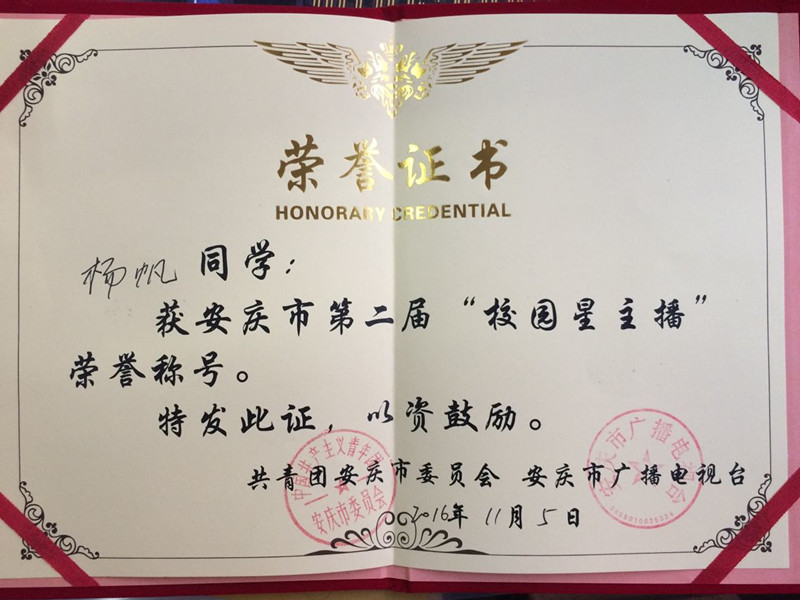 荣誉证书
HONORARY CREDENTIAL
杨帆 同学：
获安庆市第二届“校园星主播”
荣誉称号。
特发此证，以资鼓励。
共青团安庆市委员会 安庆市广播电视台
2016年 11月 5日
中国共产主义青年团
安庆市委员会
安庆市广播电视台